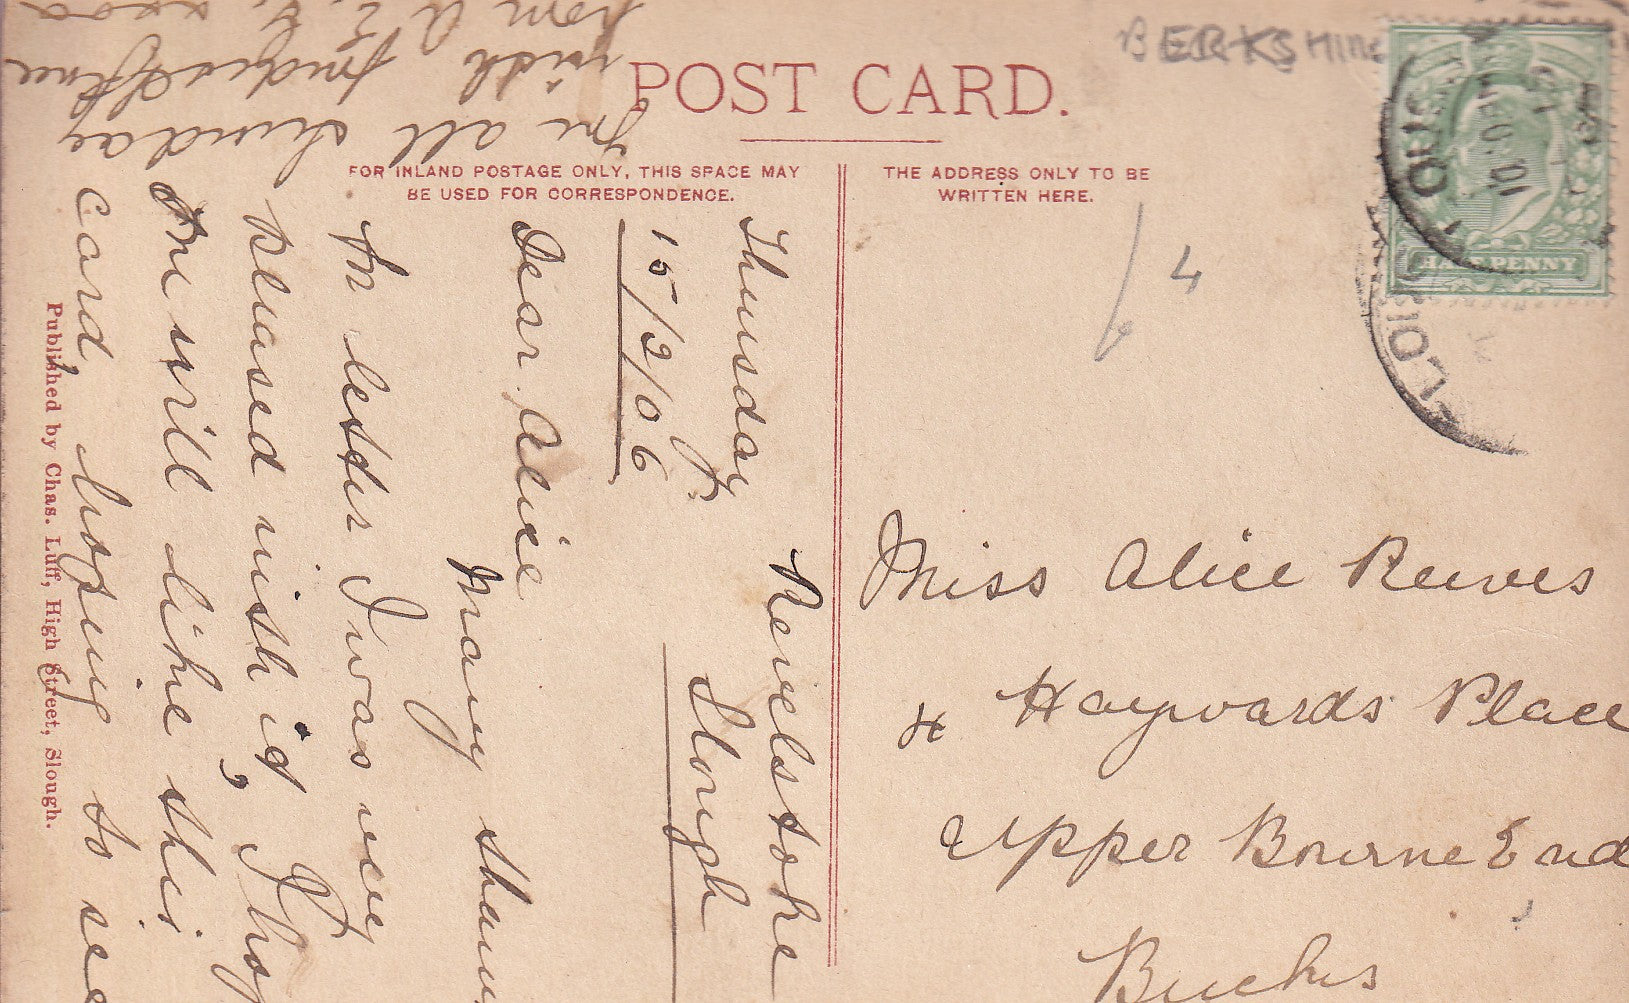 BERKSHIRE
POST CARD.
FOR INLAND POSTAGE ONLY, THIS SPACE MAY
BE USED FOR CORRESPONDENCE.
THE ADDRESS ONLY TO BE
WRITTEN HERE.
HALF PENNY
SLOUGH
4
Miss Alice Reeves
Haywards Place
Upper Bourne End
Bucks
Revelstoke
Slough
Thursday
15/3/06
Dear Alice
Many
for letter I was very
pleased with it, I
you will like this
card, hoping to see
you all Sunday
with fondest love
from A
Published by Chas. Luff, High Street, Slough.